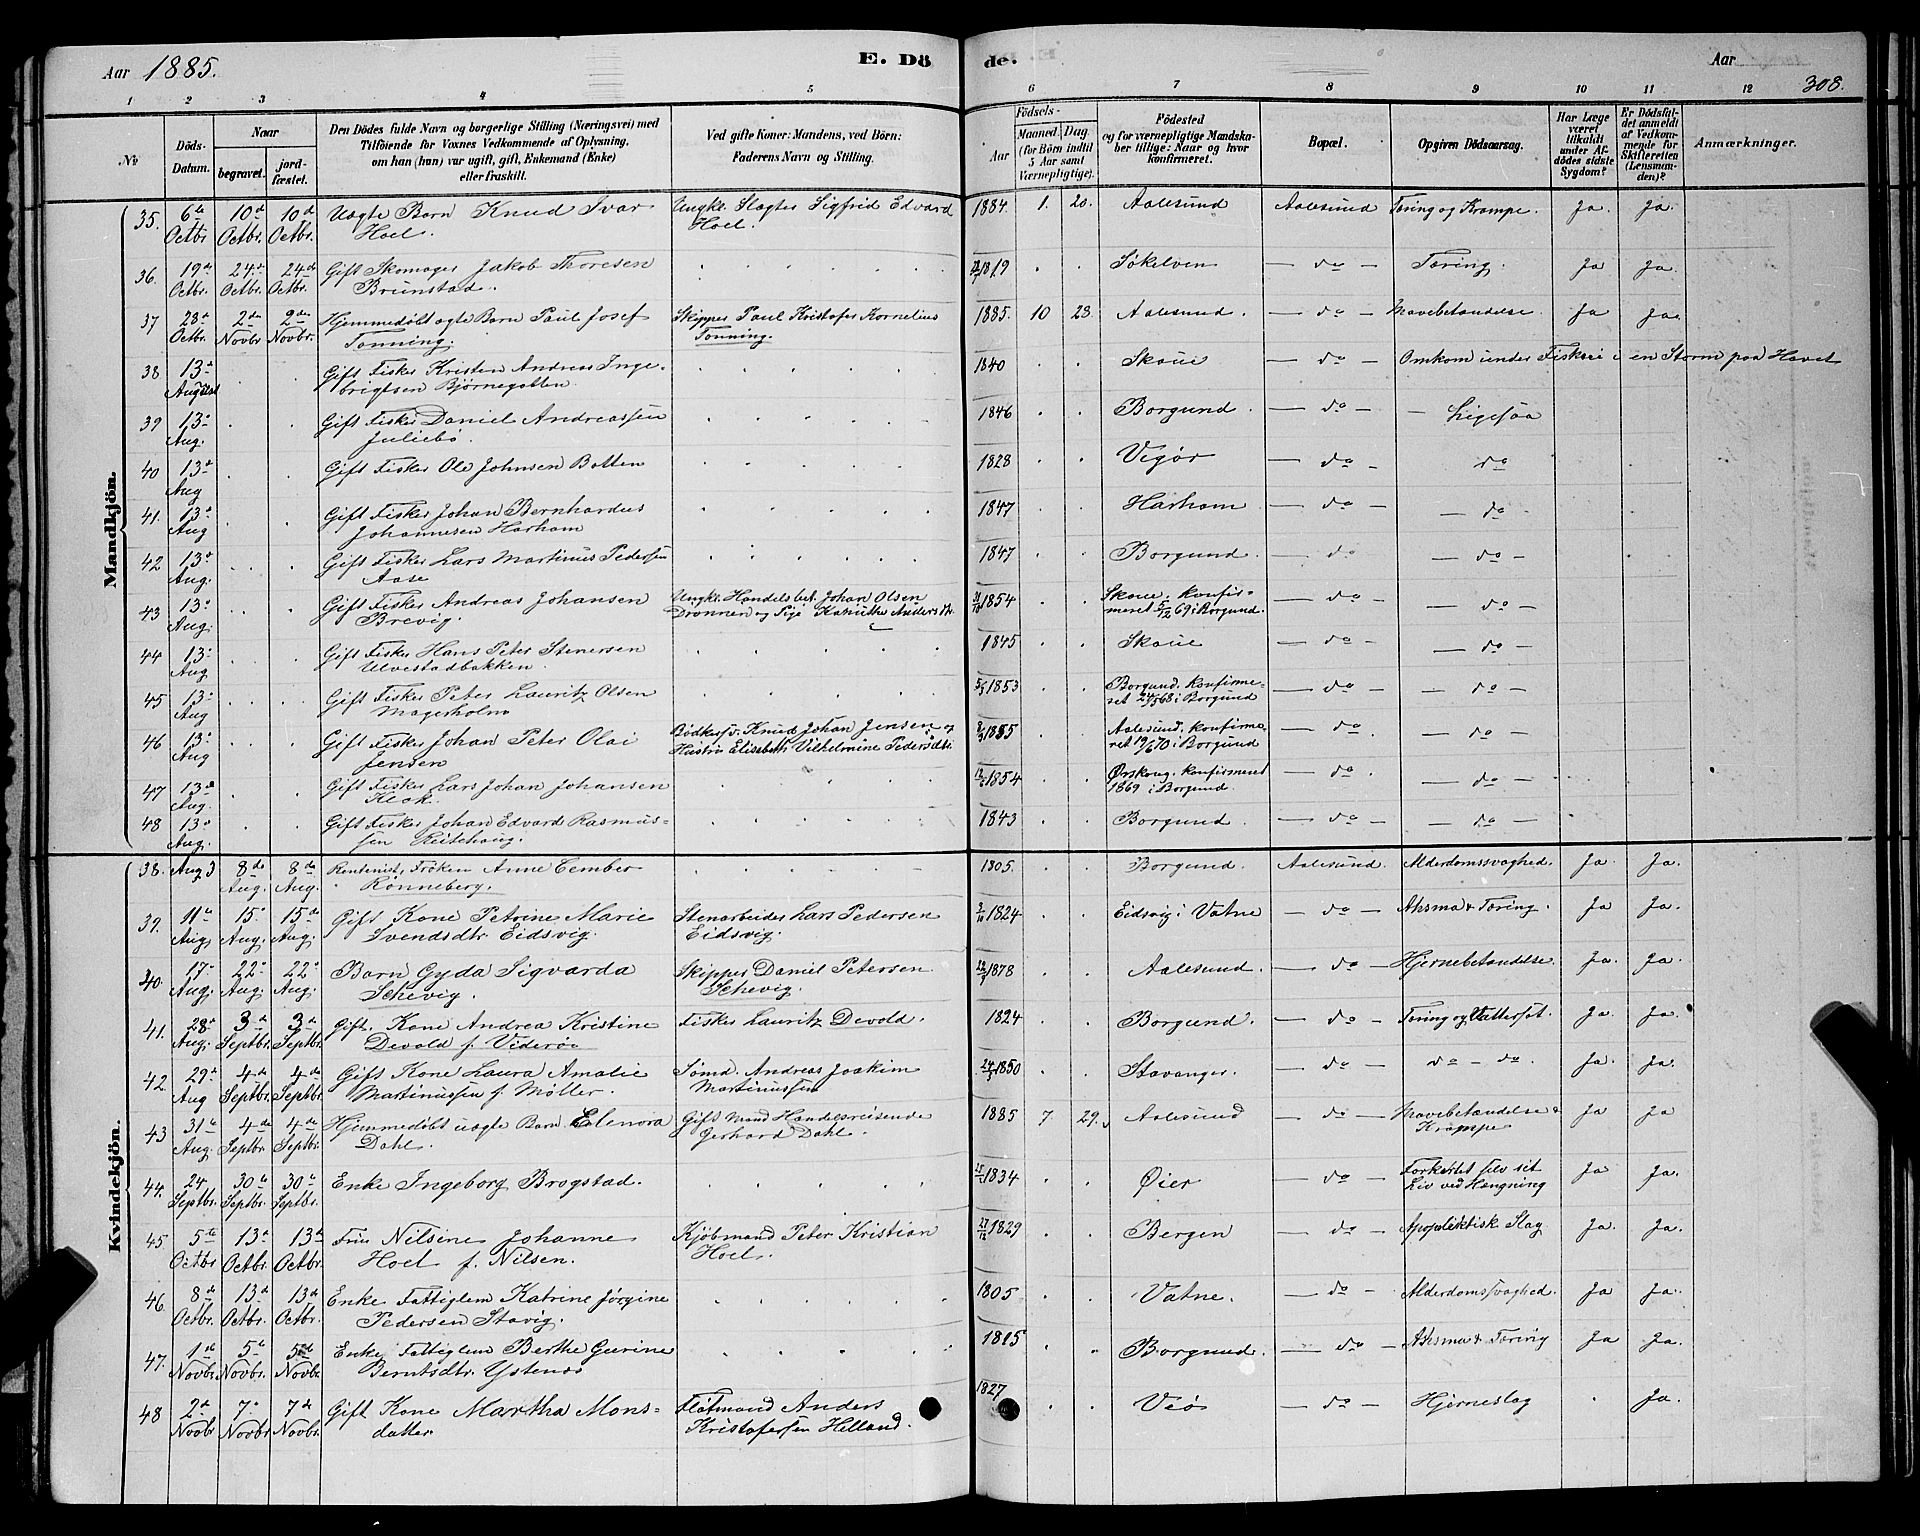 Aar 1885. E. Dö de. Aar 308.
1 2 3 4 5 6 7 8 9 10 11 12
No
Döds-Datum.
Naar begravet. jord-fæstet.
Den Dödes fulde Navn og borgerlige Stilling (Næringsvei) med Tilföiende for Voxnes Vedkommende af Oplysning, om han (hun) var ugift, gift, Enkemand (Enke) eller fraskilt.
Ved gifte Koner: Mandens, ved Börn: Faderens Navn og Stilling.
Födsels- Aar Maaned. Dag. (for Börn indtil 5 Aar samt Værnepligtige).
Födested og for værnepligtige Mandska-ber tillige: Naar og hvor konfirmeret.
Bopæl.
Opgiven Dödsaarsag.
Har Læge været tilkaldt under Af-dödes sidste Sygdom?
Er Dödsfal-det anmeldt af Vedkom-mende for Skifteretten (Lensman-den)?
Anmærkninger.
Mandkjön.
35. 6te Octbr. 10de Octbr. 10de Octbr. Uægte Barn Knud Ivar Hoel. Ungkl. Slagter Sigfrid Edvard Hoel. 1884. 1. 20. Aalesund Aalesund Tæring og Krampe. Ja. Ja.
36. 19de Octbr. 24de Octbr. 24de Octbr. Gift Skomager Jakob Thoresen Brunstad. 1819 Søkelven — do — Tæring. Ja Ja.
37 28de Octbr. 2den Novbr 2den Novbr. Hjemmedøbt ægte Barn Paul Josef Tonning. Skipper Paul Kristofer Kornelius Tonning. 1885. 10 23. Aalesund. — do — Mavebetændelse. Ja Ja.
38 13de August Gift Fisker Kristen Andreas Inge-brigtsen Bjørnegotten. 1840 Skoue — do — Omkom under Fiskeri i en Storm paa Havet
39 13de Aug. Gift Fisker Daniel Andreassen Juliebø. 1846 Borgund. — do — — Ligesaa
40 13de Aug Gift Fisker Ole Johnsen Botten 1828 Vigør — do — do
41. 13de Aug Gift Fisker Johan Bernhardus Johannesen Harham 1847 Harham — do — — do —
42 13de Aug. Gift Fisker Lars Martinus Pedersen Aase 1847 Borgund. — do — do —
43 13de Aug. Gift Fisker Andreas Johansen Brevig. Ungkl. Handelsbet. Johan Olsen Drønnen og Pige Kanutte Andersdtr. 31/10 1854 Skoue. konfir-meret 5/12 69 i Borgund. — do — — do —
44 13de Aug Gift Fisker Hans Peter Stenersen Ulvestadbakken. 1845 Skoue — do — do —
45 13de Aug Gift Fisker Peter Lauritz Olsen Magerholm 1853 Borgund. konfirme-ret 24/5 68 i Borgund — do — — do —
46 13de Aug Gift Fisker Johan Peter Olai Jensen Bødkersv. Knud Johan Jensen og Hustru Elisabeth Vilhelmine Pedersdtr 1855 Aalesund. konfirme-ret 19/6 70 i Borgund — do — — do —
47 13de Aug. Gift Fisker Lars Johan Johansen Klok. 1854 Ørskoug. konfirmeret 1869 i Borgund. — do — do —
48 13de Aug. Gift Fisker Johan Edvard Rasmus-sen 1843 Borgund. — do — — do —
Kvindekjön.
38. Aug 3 8de Aug. 8de Aug. Rentenist, Frøken Anne Cember Rønneberg. 1805. Borgund. Aalesund. Alderdomssvaghed. Ja. Ja.
39. 11te Aug. 15de Aug. 15de Aug. Gift Kone Petrine Marie Svendsdtr. Eidsvig. Stenarbeider Lars Pedersen Eidsvig. 1824 Eidsvig i Vatne — do — Ahsma & Tæring. Ja Ja.
40. 17de Aug. 22de Aug. 22de Aug. Barn Gyda Sigvarda Schevig. Skipper Daniel Petersen Schevig. 1878 Aalesund. — do — Hjernebetændelse. Ja. Ja.
41. 28de Aug. 3de Septbr. 3de Septbr. Gift. Kone Andrea Kristine Devold f. Viderøe Fisker Lauritz Devold. 1824 Borgund. — do — Tæring og Vattersot. Ja. Ja.
42 29de Aug 4de Septbr. 4de Septbr. Gift Kone Laura Amalie Martinussen f. Møller. Sømd. Andreas Joakim Martinussen 1850 Stavanger. — do — do — do. Ja. Ja.
43 31te Aug. 4de Septbr. 4de Septbr. Hjemmedøbt uægte Barn Elenora Dahl. Gift Mand Handelsreisende Gerhard Dahl. 1885 7 29. Aalesund — do — Mavebetændelse & Krampe Ja Ja
44. 24 Septbr. 30te Septbr. 30te Septbr. Enke Ingeborg Brogstad. 1834 Øier — do Forkortet selv sit Liv ved Hængning Ja Ja.
45 5te Octbr 13de Octbr. 13de Octbr. Fru Nilsine Johanne Hoel f. Nilsen. Kjöbmand Peter Kristian Hoel. 27/12 1829 Bergen — do — Apoplektisk Slag Ja. Ja.
46. 8de Octbr. 13de Octbr. 13de Octbr. Enke Fattiglem Katrine Jørgine Pedersen Stavig. 1805 Vatne. — do — Alderdomssvaghed. Ja Ja.
47. 1ste Novbr. 5te Novbr. 5te Novbr. Enke Fattiglem Berthe Gurine Berntsdtr. Ystenes 1815 Borgund. — do — Ahsma & Tæring Ja Ja.
48 2de Novbr 7de Novbr 7de Novbr. Gift Kone Martha Mons-datter. Fløtmand Anders Kristofersen Helland. 1827 Veø — do — Hjerneslag Ja.